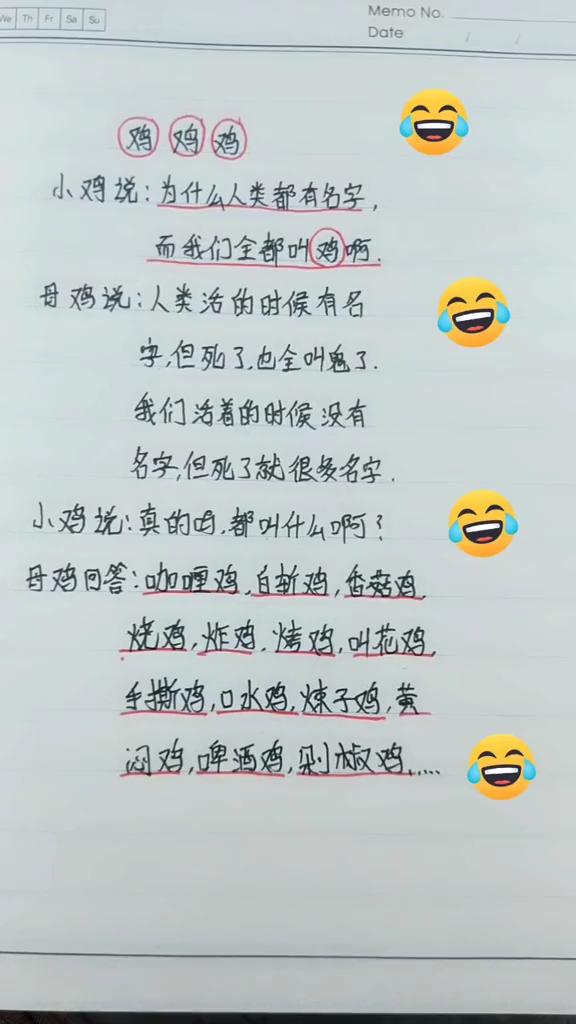 We Th Fr Sa Su
Memo No.
Date / /
鸡 鸡 鸡
小鸡说:为什么人类都有名字,
而我们全都叫鸡啊.
母鸡说:人类活的时候有名
字,但死了,也全叫鬼了.
我们活着的时候没有
名字,但死了就很多名字.
小鸡说:真的吗,都叫什么啊?
母鸡回答:咖喱鸡,白斩鸡,香菇鸡,
烧鸡,炸鸡,烤鸡,叫花鸡,
手撕鸡,口水鸡,辣子鸡,黄
闷鸡,啤酒鸡,剁椒鸡,....